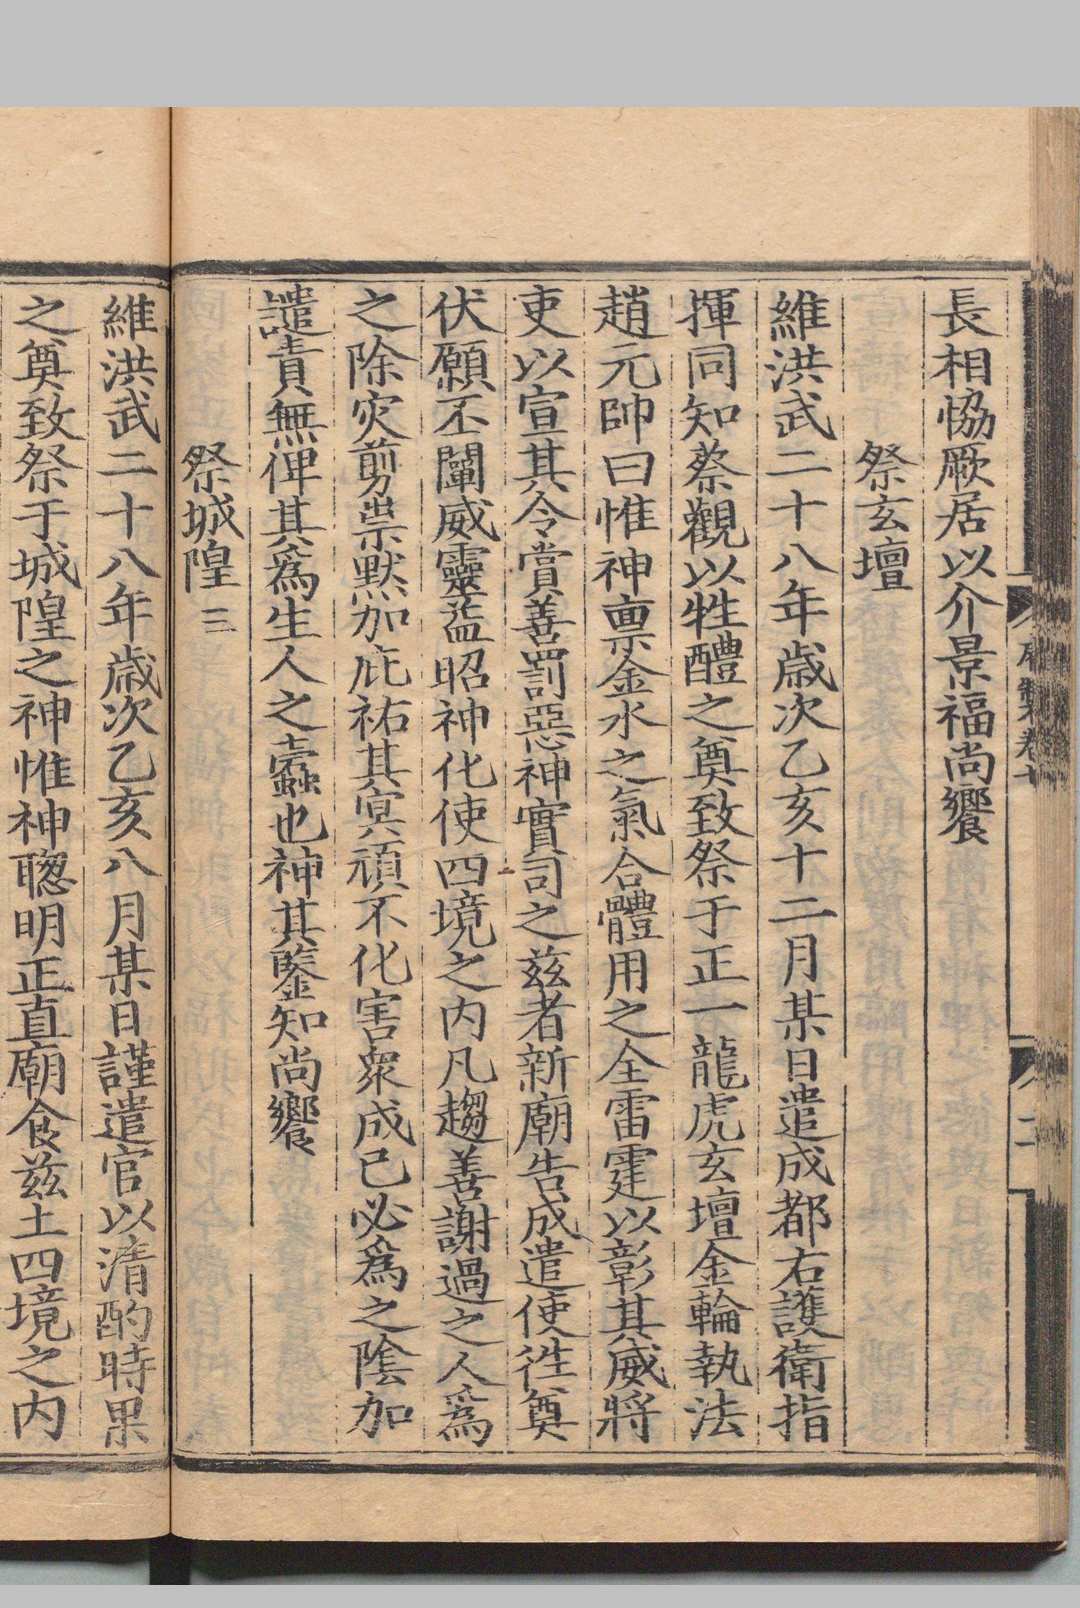 長相恊厥居以介景福尚饗
祭玄壇
維洪武二十八年歲次乙亥十二月某日遣成都右護衛指
揮同知蔡觀以牲醴之奠致祭于正一龍虎玄壇金輪執法
趙元帥曰惟神禀金水之氣合體用之全雷霆以彰其威將
吏以宣其令賞善罰惡神實司之兹者新廟告成遣使徃奠
伏願丕闡威靈益昭神化使四境之内凡趨善謝過之人爲
之除灾剪祟默加庇祐其冥頑不化害衆成己必爲之隂加
譴責無俾其爲生人之蠹也神其鑒知尚饗
祭城隍三
維洪武二十八年歲次乙亥八月某日謹遣官以清酌時果
之奠致祭于城隍之神惟神聰明正直廟食兹土四境之内
卷十
二